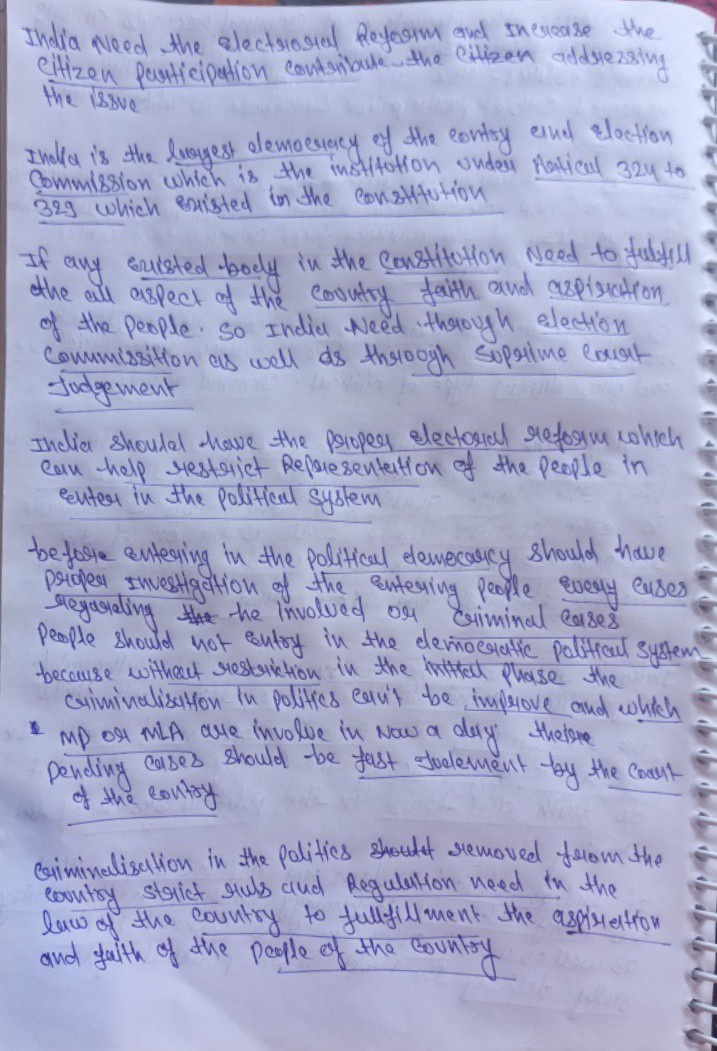 India Need the electrorial Reform and Increase the
citizen participation contribute the citizen addressing
the issue
India is the largest democracy of the contry and eloction
Commission which is the institution under Aartical 324 to
329 which existed in the constitution
If any existed body in the constitution Need to fulfill
the all aspect of the country faith and aspiration
of the people. so India Need through election
Commission as well as throogh Soprime Court
Judgement
India should have the proper electorial reform which
can help restrict Representation of the people in
enter in the political system
before entering in the political democarcy should have
proper Investigation of the entering people every cases
regarding the he involved or criminal cases
People should not entry in the democratic political system
because without restriction in the initial phase the
criminalisation in politics can't be improve and which
MP or MLA are involve in Now a day. there
Pending cases should be fast Judement by the Court
of the contry
Criminalisation in the politics should removed from the
country strict ruls and Regulation need in the
law of the country to fullfillment the aspiration
and faith of the people of the country